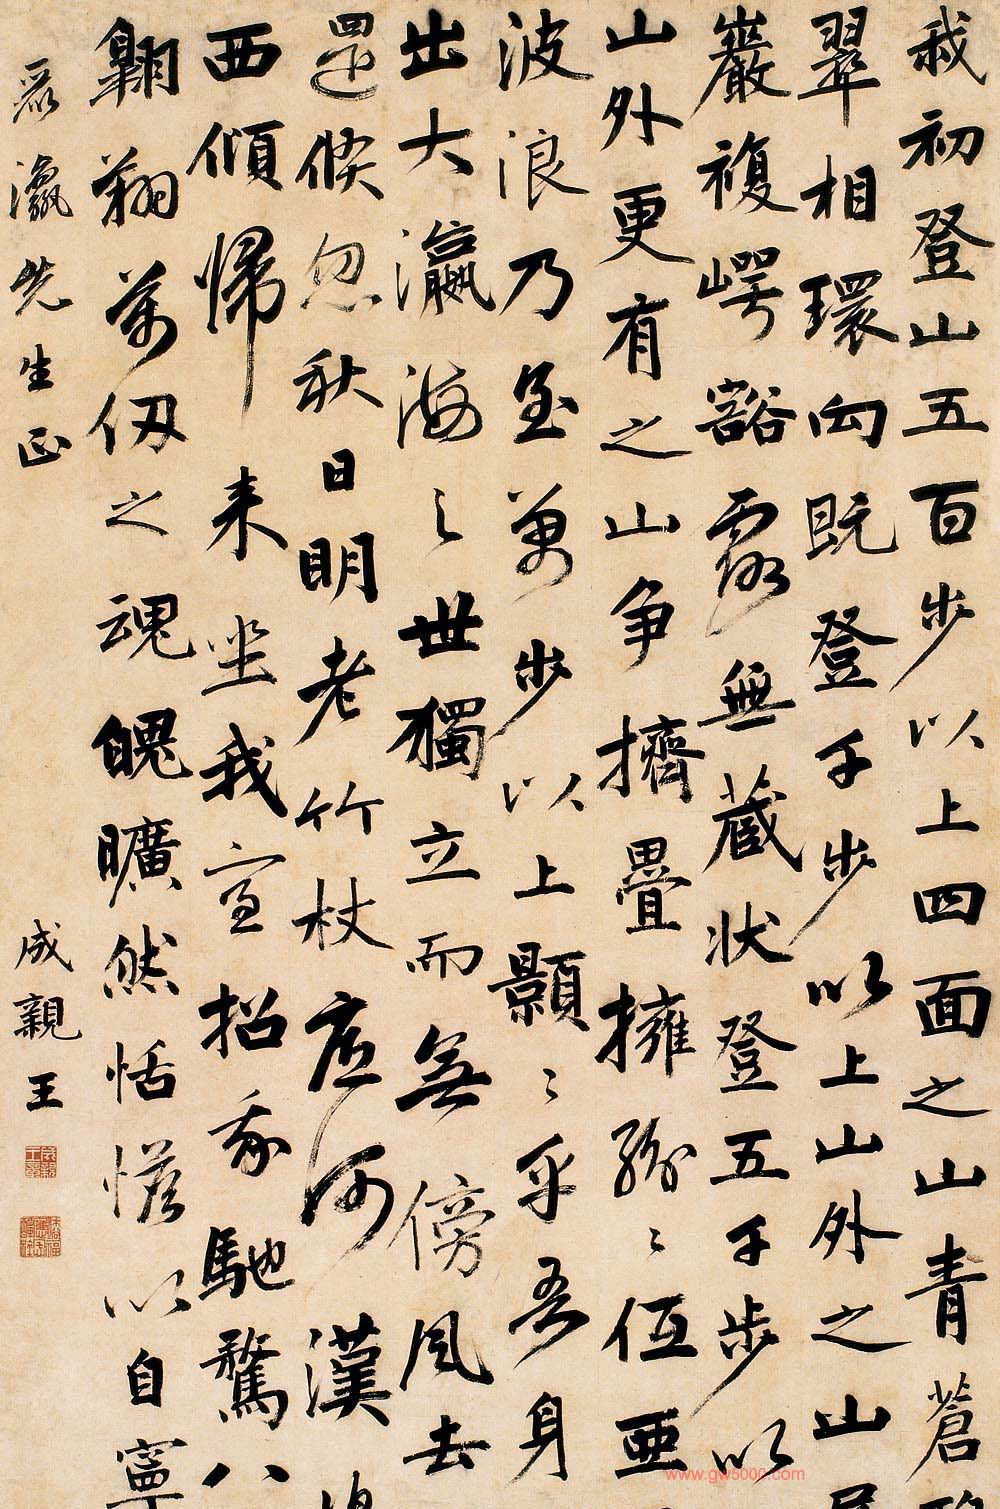 我初登山五百步以上四面之山青蒼
翠相環向既登千步以上山外之山
巖複崿豁露無藏狀登五千步以
山外更有之山爭擠疊擁紛〻伍亞
波浪乃至萬步以上顥〻乎吾身
出大瀛海之世獨立而無傍風去
還倏忽秋日明老竹杖應河漢
西傾歸來坐我室招我馳騖八
翱翔萬仞之魂魄曠然恬憺以自寧
瀛先生正
成親王
www.gw5000.com